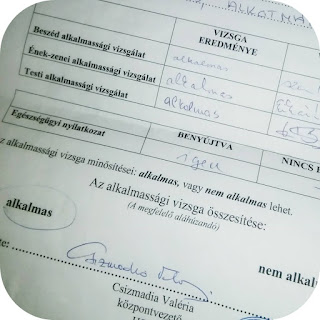 ALKALMA
VIZSGA
EREDMÉNYE
Beszéd alkalmassági vizsgálat alkalmas
Ének-zenei alkalmassági vizsgálat alkalmas
Testi alkalmassági vizsgálat alkalmas
BENYÚJTVA NINCS B
Egészségügyi nyilatkozat igen
az alkalmassági vizsga minősítései: alkalmas, vagy nem alkalmas lehet.
Az alkalmassági vizsga összesítése:
(A megfelelő aláhúzandó)
alkalmas nem alkal
te:
Csizmadia Valéria
központvezető